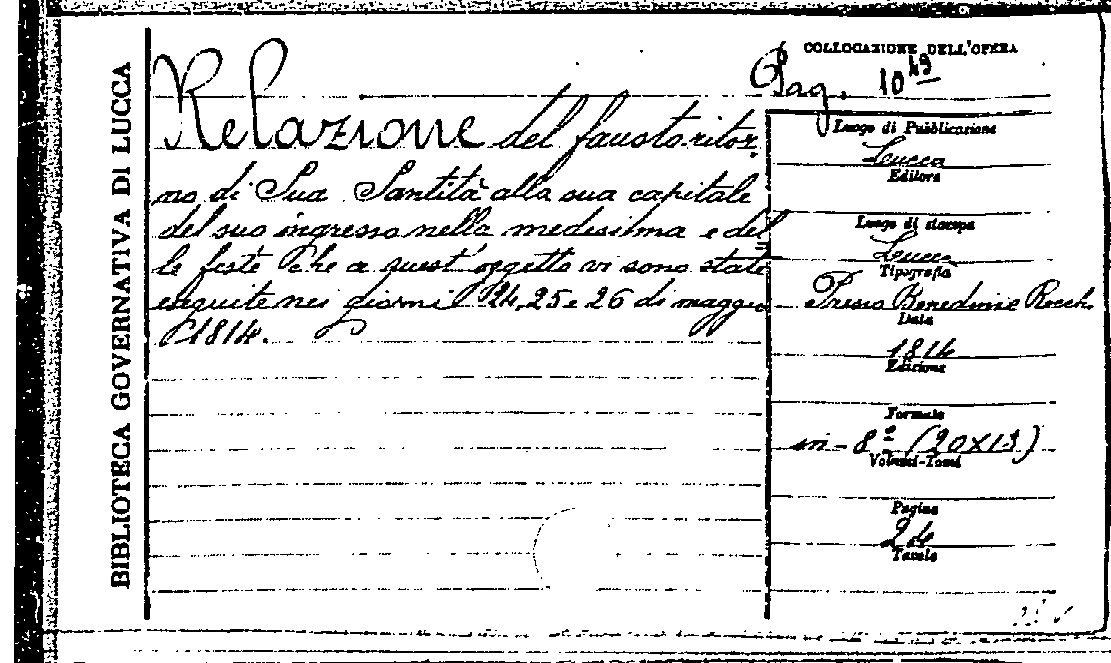 BIBLIOTECA GOVERNATIVA DI LUCCA
COLLOCAZIONE DELL'OPERA
Pag. 10 49
Relazione del fausto ritor-
no di Sua Santità alla sua capitale
del suo ingresso nella medesima e del
le feste che a quest'oggetto vi sono state
eseguite nei giorni 24, 25 e 26 di maggio
1814.
Luogo di Pubblicazione
Lucca
Editore
Luogo di stampa
Lucca
Tipografia
Presso Benedini e Rocchi
Data
1814
Edizione
Formato
in-8º (20x13)
Volumi-Tomi
Pagine
24
Tavole